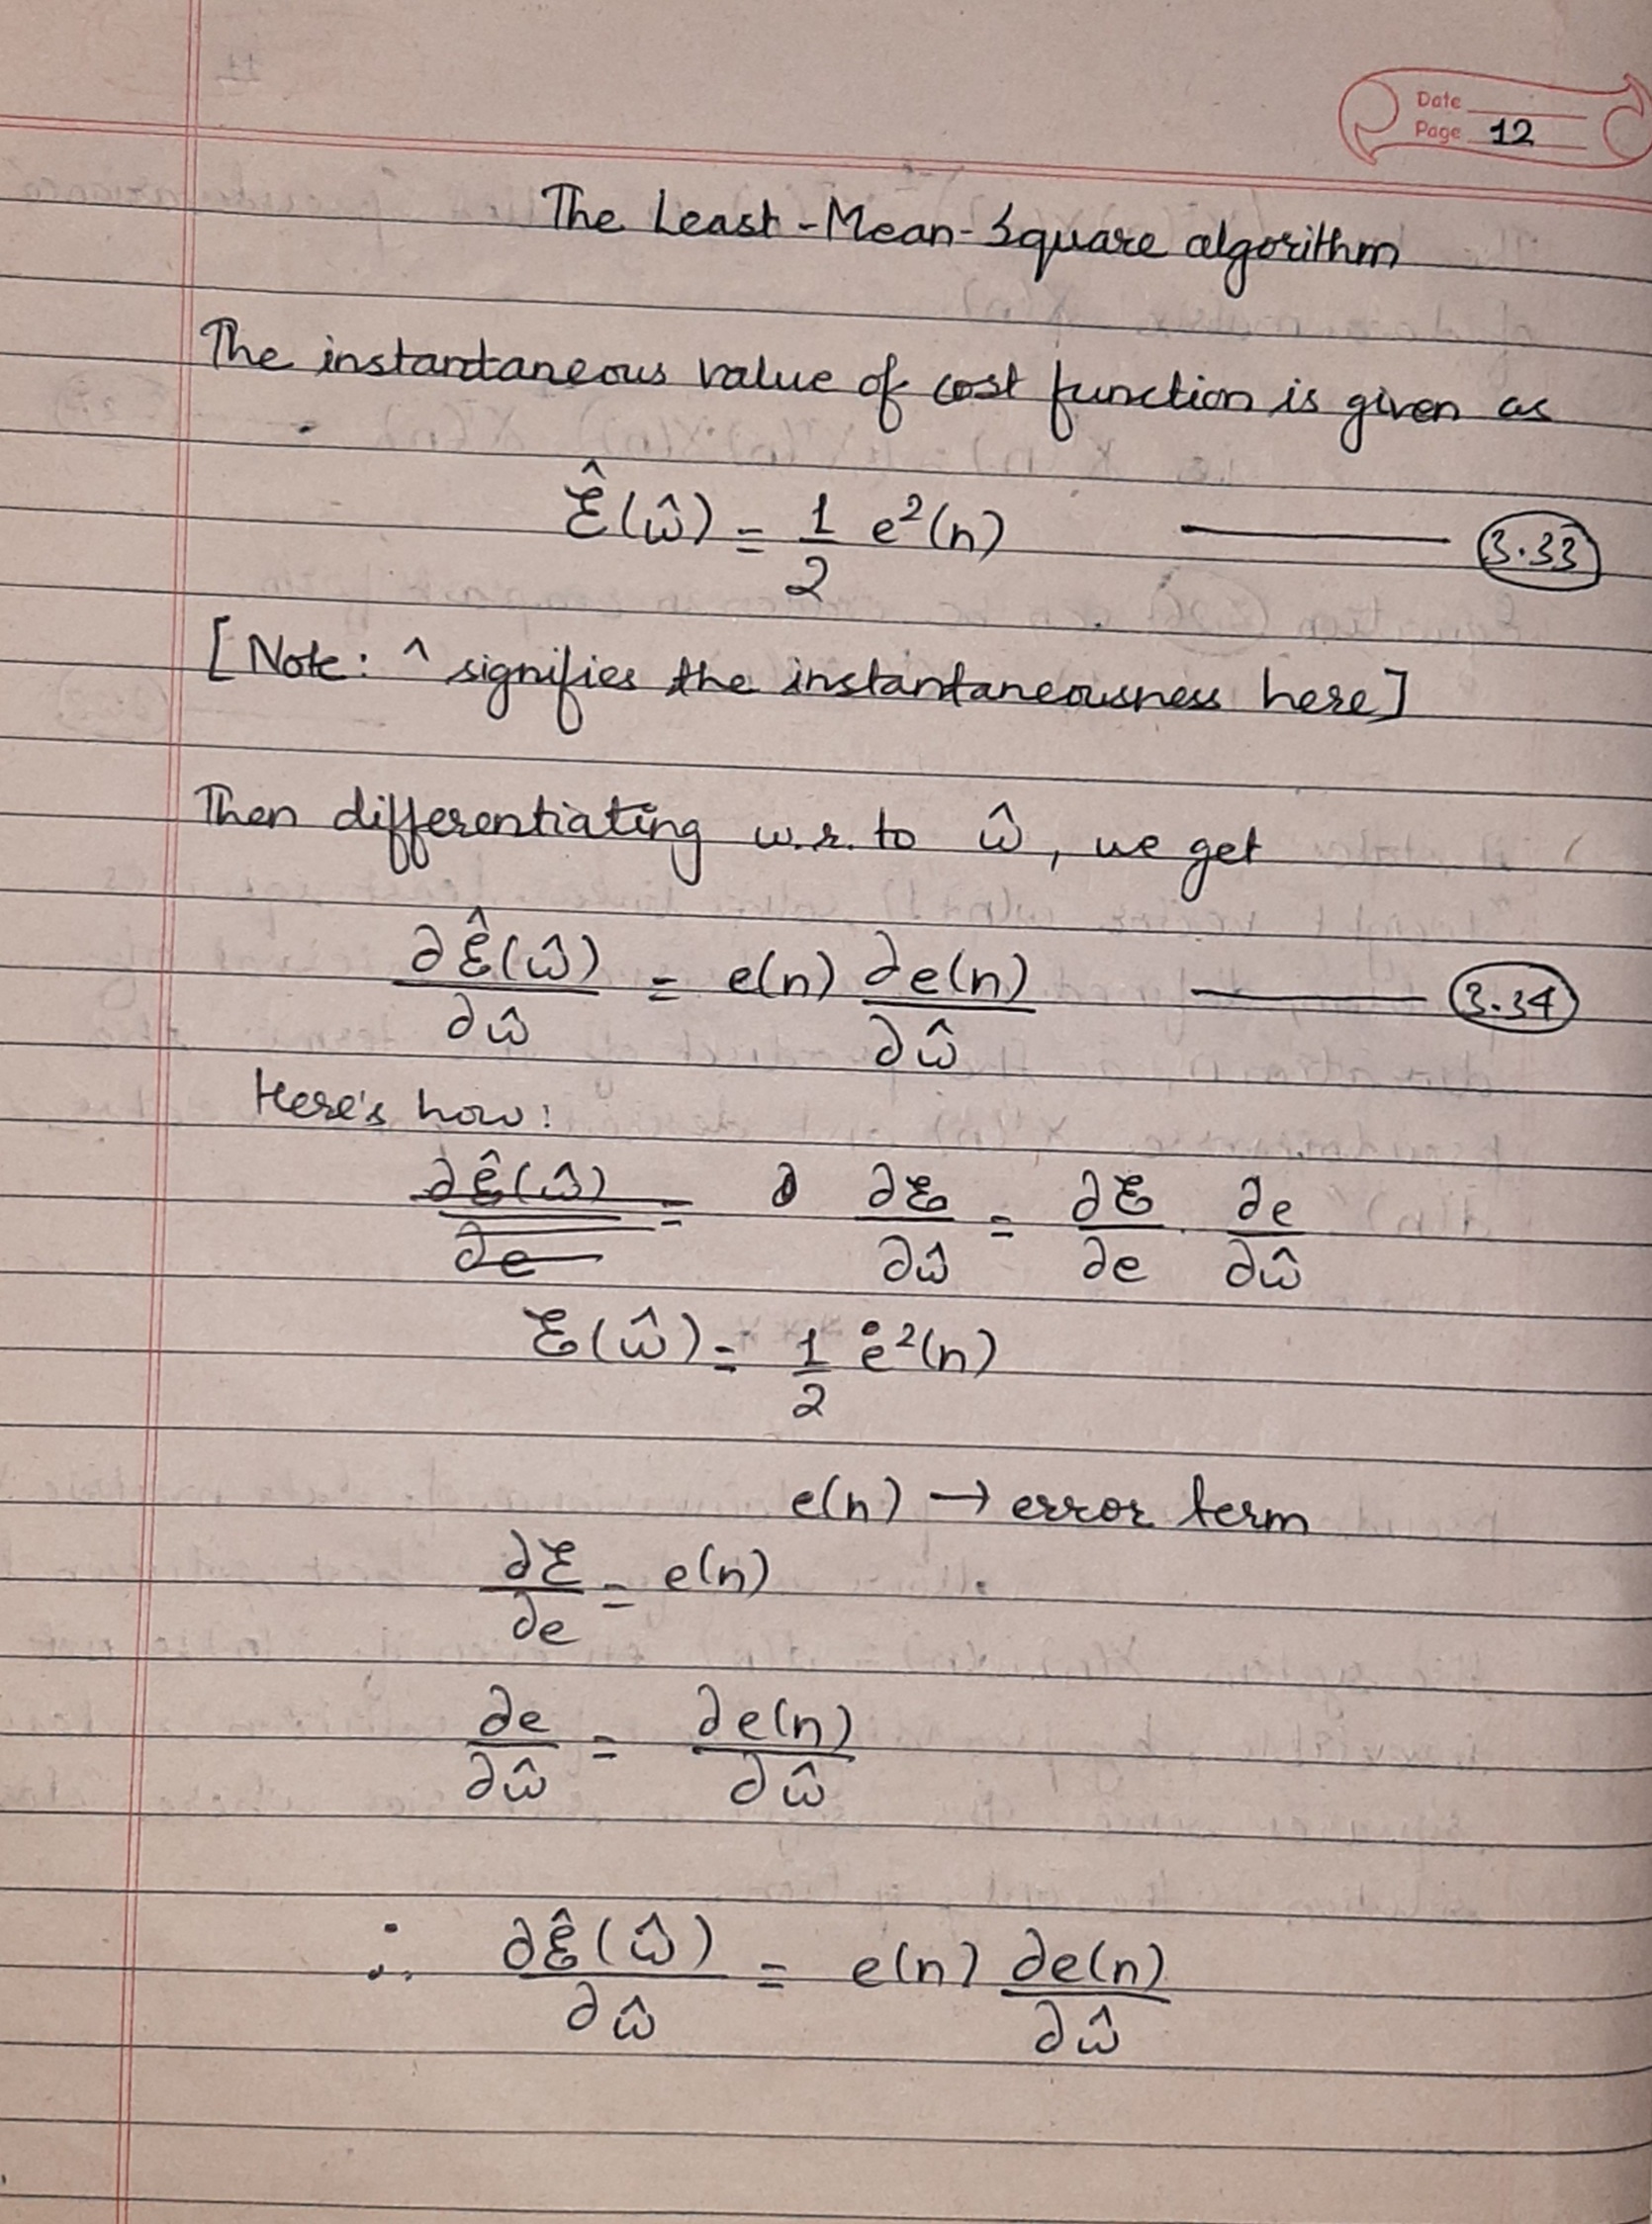 Date
Page 12
The Least-Mean-Square algorithm
The instantaneous value of cost function is given as
ℰ̂(ŵ) = 1/2 e²(n) ——— (3.33)
[Note: ^ signifies the instantaneousness here]
Then differentiating w.r. to ŵ, we get
∂ℰ̂(ŵ)/∂ŵ = e(n) ∂e(n)/∂ŵ ——— (3.34)
Here's how:
∂ℰ̂(ŵ)/∂e = ∂ ∂ℰ/∂ŵ = ∂ℰ/∂e · ∂e/∂ŵ
ℰ(ŵ) = 1/2 e²(n)
e(n) → error term
∂ℰ/∂e = e(n)
∂e/∂ŵ = ∂e(n)/∂ŵ
∴ ∂ℰ̂(ŵ)/∂ŵ = e(n) ∂e(n)/∂ŵ